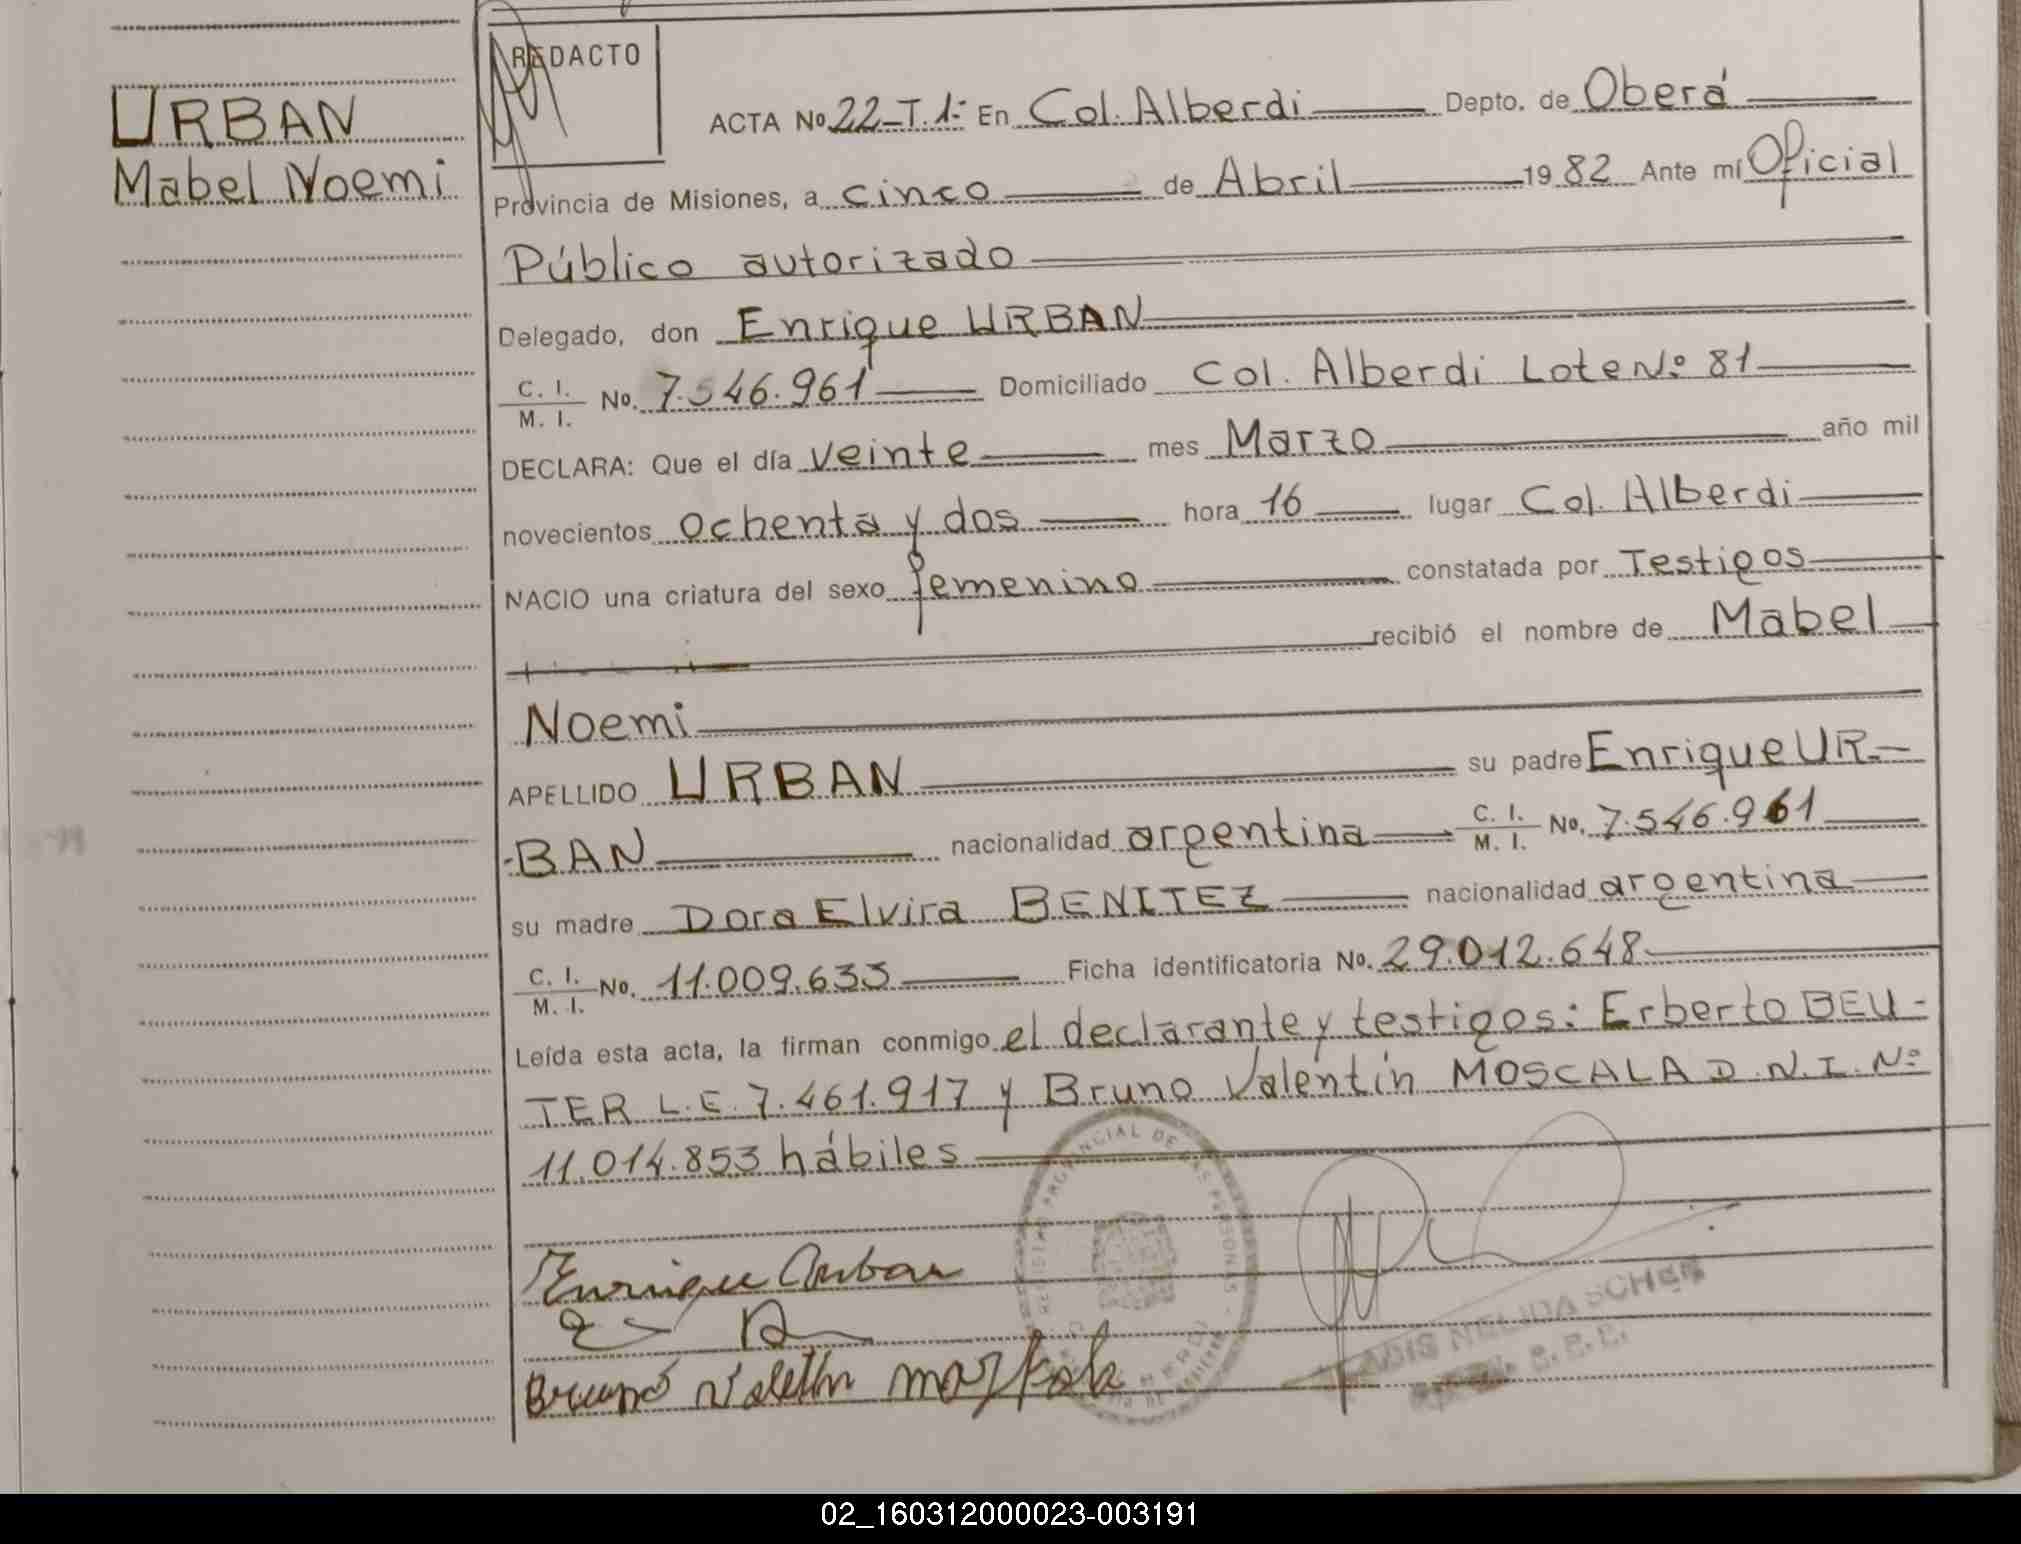 URBAN
Mabel Noemi
REDACTO
ACTA No 22-T.1:- En Col. Alberdi Depto. de Oberá
Provincia de Misiones, a cinco de Abril 1982 Ante mí Oficial
Público autorizado
Delegado, don Enrique URBAN
C. I. / M. I. No. 7.546.961 Domiciliado Col. Alberdi Lote Nº 81
DECLARA: Que el día veinte mes Marzo año mil
novecientos ochenta y dos hora 16 lugar Col. Alberdi
NACIO una criatura del sexo femenino constatada por Testigos
recibió el nombre de Mabel
Noemi
APELLIDO URBAN su padre Enrique UR-
-BAN nacionalidad argentina C. I. / M. I. No. 7.546.961
su madre Dora Elvira BENITEZ nacionalidad argentina
C. I. / M. I. No. 11.009.633 Ficha identificatoria No. 29.012.648
Leída esta acta, la firman conmigo el declarante y testigos: Erberto BEU-
TER L.E. 7.461.917 y Bruno Valentín MOSCALA D.N.I. Nº
11.014.853 hábiles
REGISTRO PROVINCIAL DE LAS PERSONAS
Enrique Urban
NELIDA SCHER
02_160312000023-003191